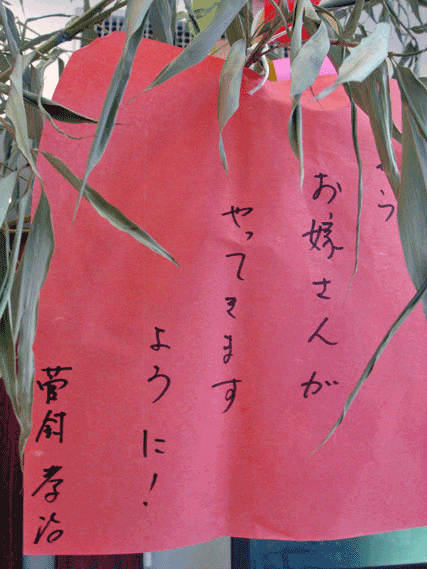 う
お嫁さんが
やってきます
ように!
孝治